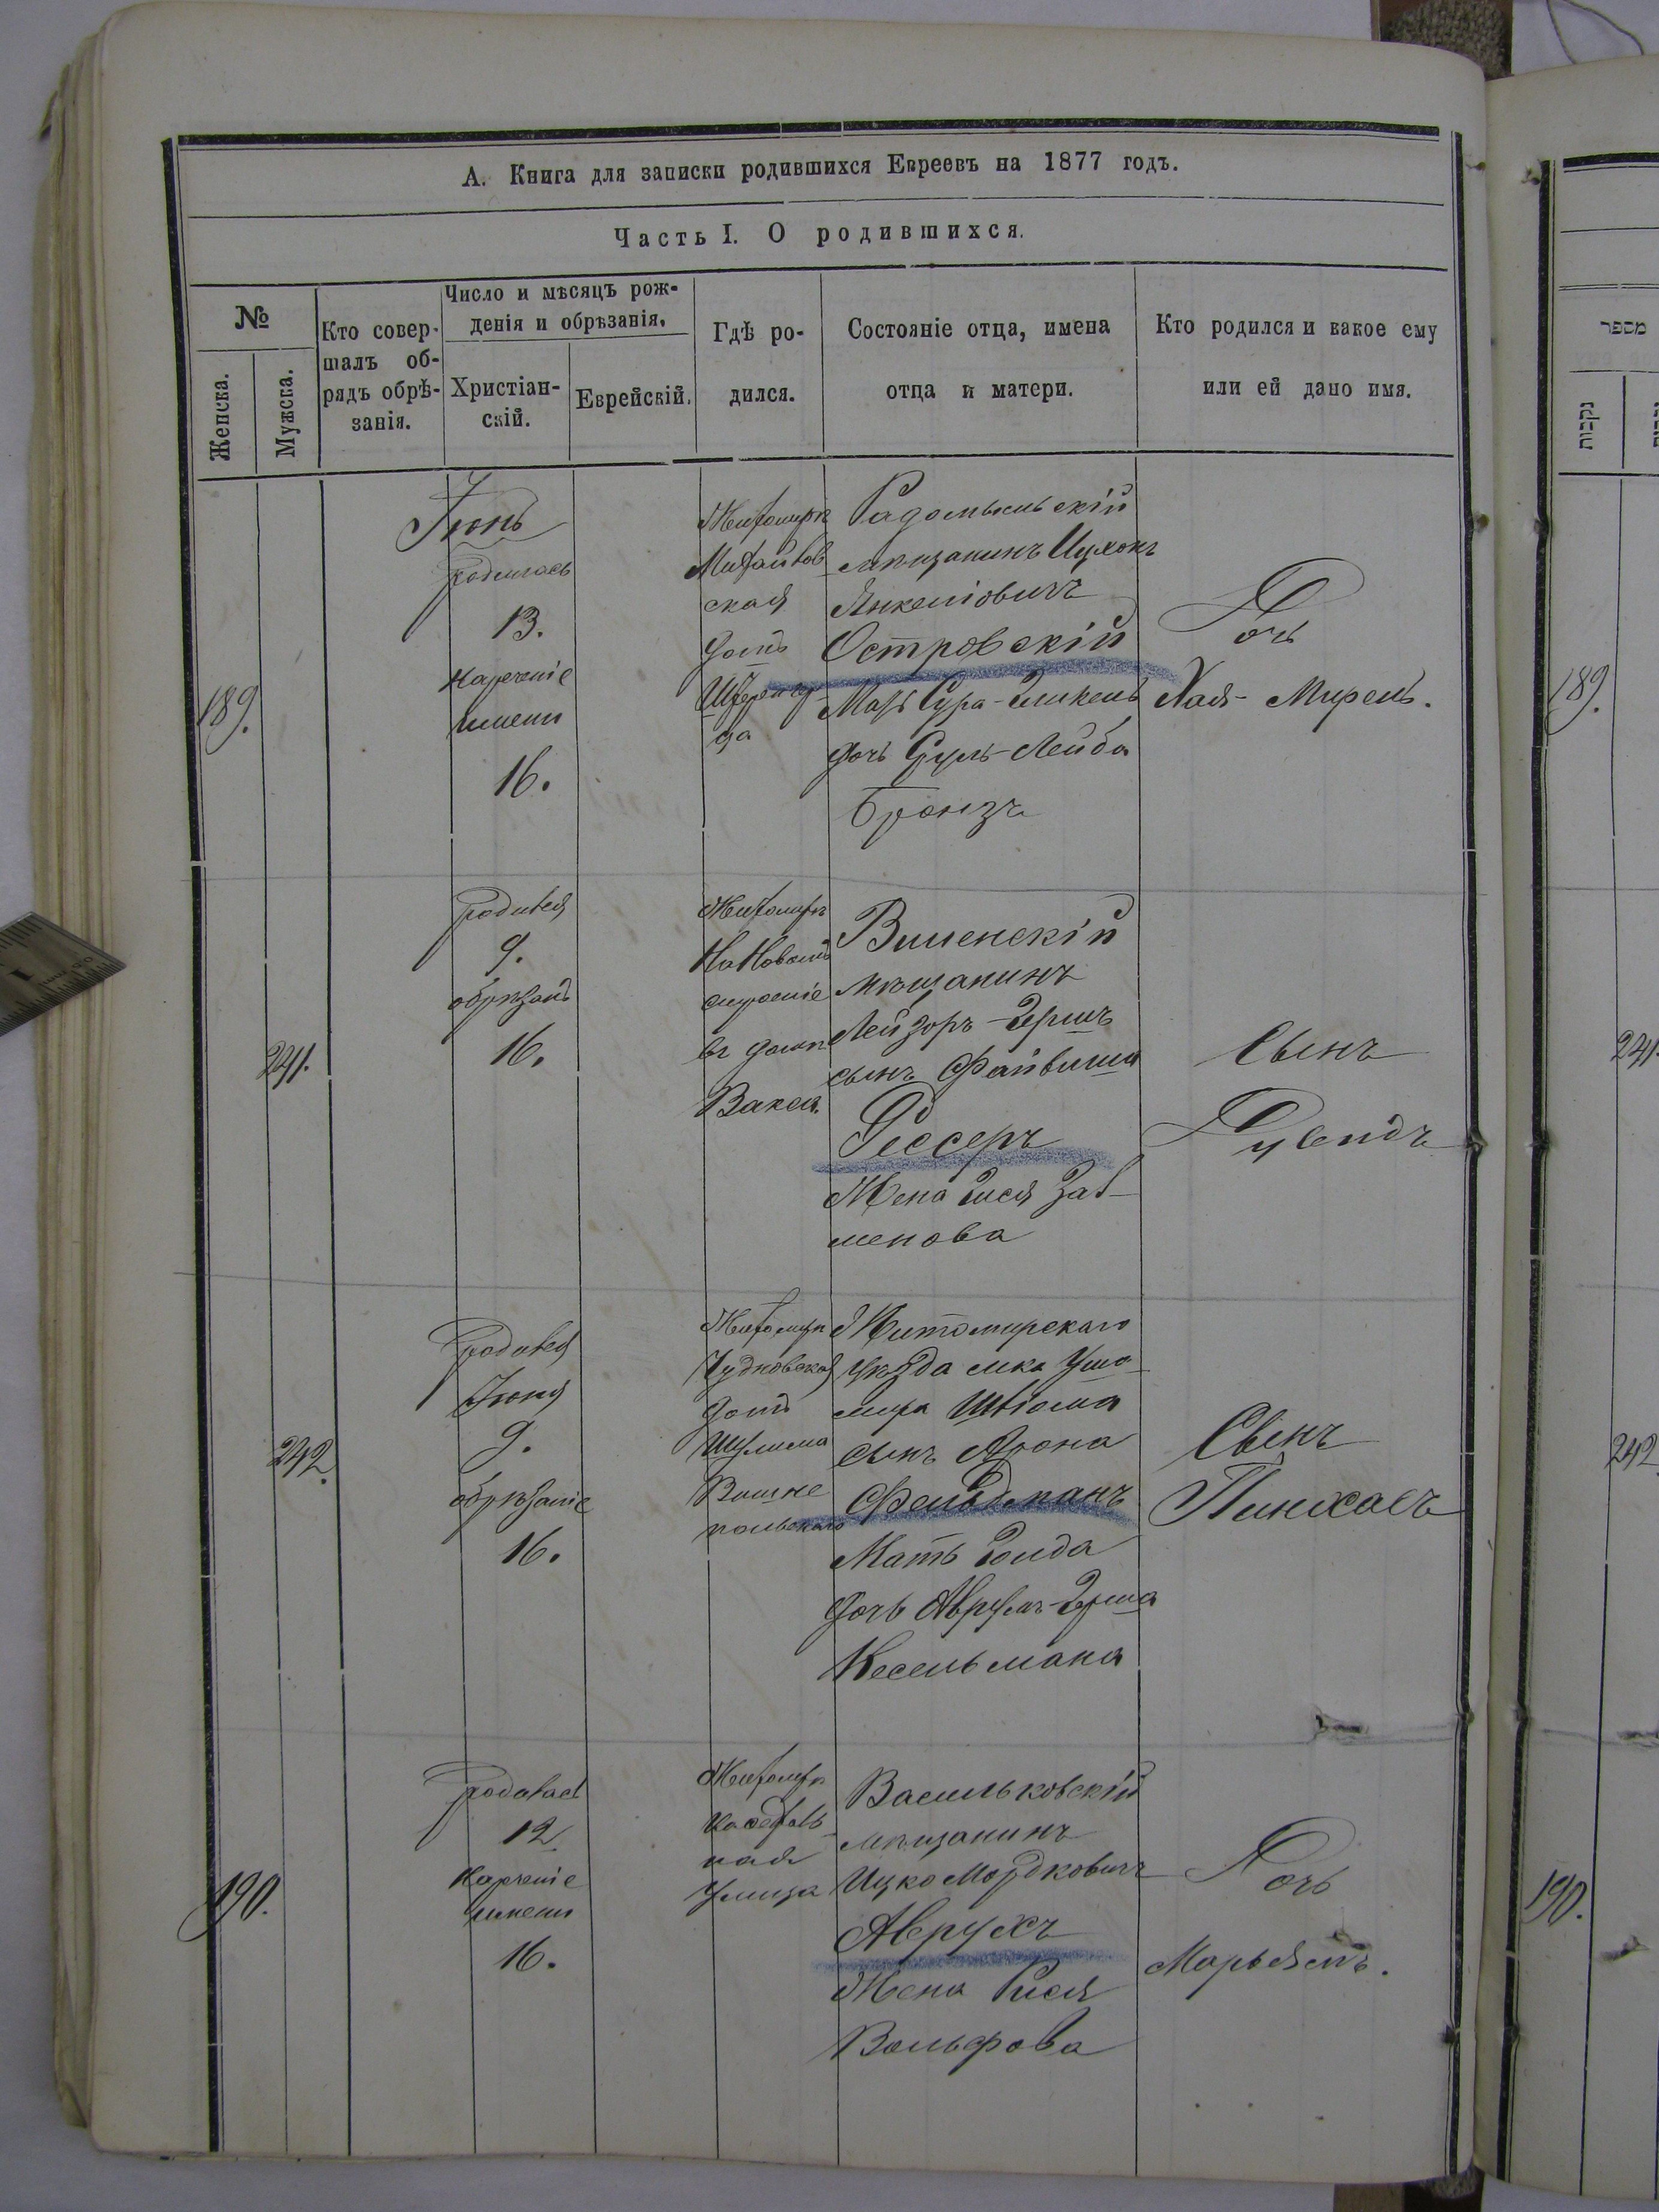 А. Книга для записки родившихся Евреевъ на 1877 годъ.
Часть I. О родившихся.
№
Женска.
Мужска.
Кто совер-
шалъ об-
рядъ обрѣ-
занія.
Число и мѣсяцъ рож-
денія и обрѣзанія.
Христіан-
скій.
Еврейскій.
Гдѣ ро-
дился.
Состояніе отца, имена
отца и матери.
Кто родился и какое ему
или ей дано имя.
189.
Іюнь
родилась
13.
нареченіе
имени
16.
Житомиръ
Михайлов
ская
домъ
Радомысльскій
мѣщанинъ Ицхокъ
Янкеліовичъ
Островскій
Мать Сура-
дочь Сруль-Лейба
Бронзъ
Дочь
Хая-Мирель.
241.
родился
9.
обрѣзанъ
16.
Житомиръ
На Новомъ
строеніе
въ домѣ
Вакса.
Виленскій
мѣщанинъ
Лейзоръ-Гершъ
сынъ Файвиша
Рессеръ
Жена Зав-
менова
Сынъ
Дувидъ
242.
родился
Іюня
9.
обрѣзаніе
16.
Житомиръ
Чудновская
домъ
Шулима
Вишне
польскаго
Житомирскаго
уѣзда мка Ушо-
мира Шліома
сынъ Арона
Фельдманъ
Мать Голда
дочь Аврумъ-Герша
Кесельмана
Сынъ
Пинхасъ
190.
родилась
12
нареченіе
имени
16.
Житомиръ
кафедраль
ная
улица
Васильковскій
мѣщанинъ
Ицко Мордковичъ
Аврухъ
Жена Рися
Вольфова
Дочь
Марьямъ.
מספר
נקבות
189.
241.
242
190.